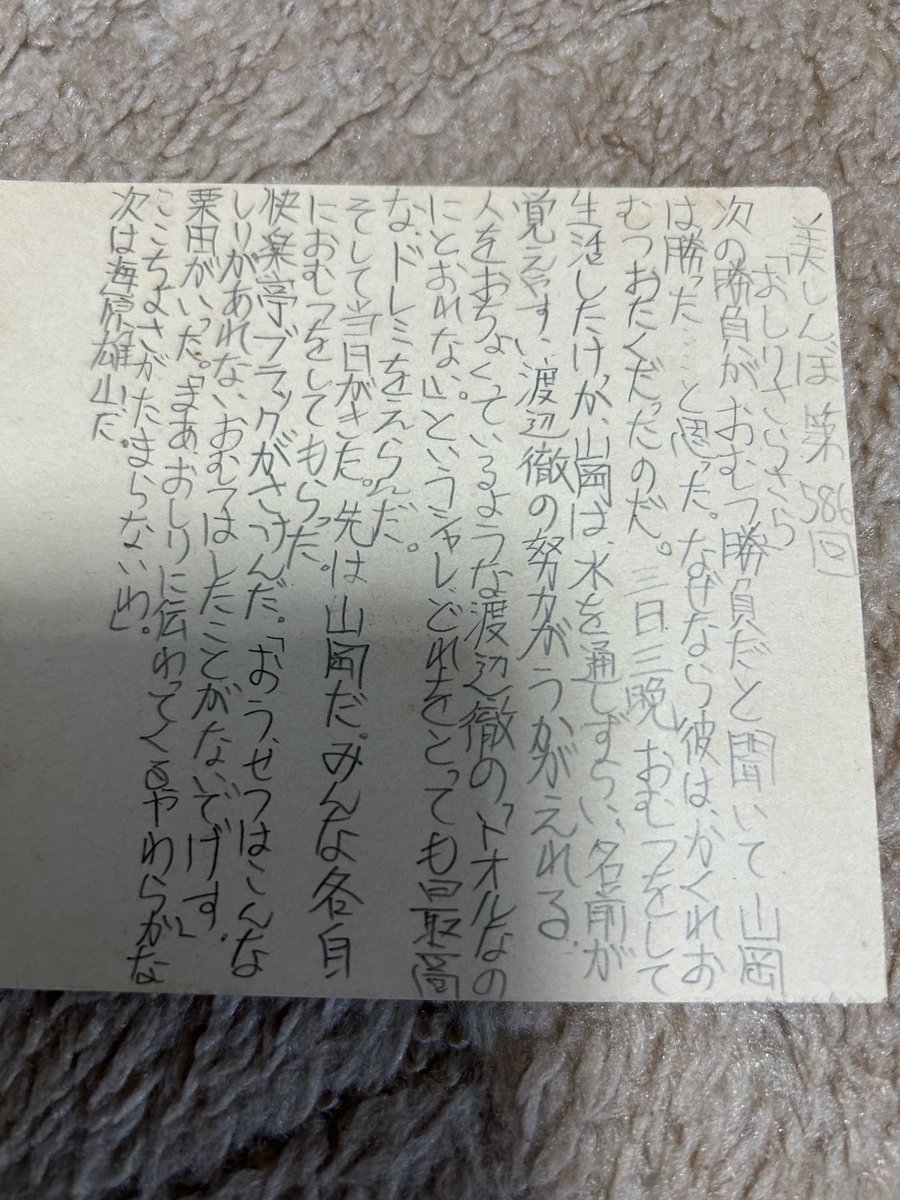 美しんぼ 第586回
「おしりさらさら」
次の勝負が、おむつ勝負だと聞いて山岡
は勝った……と思った。なぜなら彼は、かくれお
むつおたくだったのだ。三日三晩、おむつをして
生活したけっか、山岡は、水を通しずらい、名前が
覚えやすい、渡辺徹の努力がうかがえれる。
人をおちょくっているような渡辺徹の「トオルなの
にとおれない」というシャレどれをとっても最高
な、ドレミをえらんだ。
そして当日がきた。先は山岡だ。みんな各自
におむつをしてもらった。
快楽亭ブラックがさけんだ。「おうっせつはこんな
しりがあれないおむつはしたことがないでげす」
栗田がいった。「まあ、おしりに伝わってくるやわらかな
ここちよさがたまらないわ。」
次は海原雄山だ。